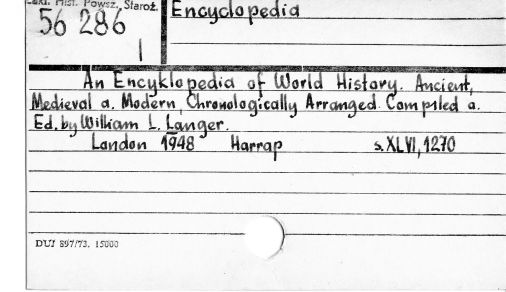 Zakł. Hist. Powsz. Staroż.
56 286
I
Encyclopedia
An Encyklopedia of World History. Ancient,
Medieval a. Modern, Chronologically Arranged. Compiled a.
Ed. by William L. Langer.
London 1948 Harrap s. XLVI, 1270
DUJ 897/73. 15000